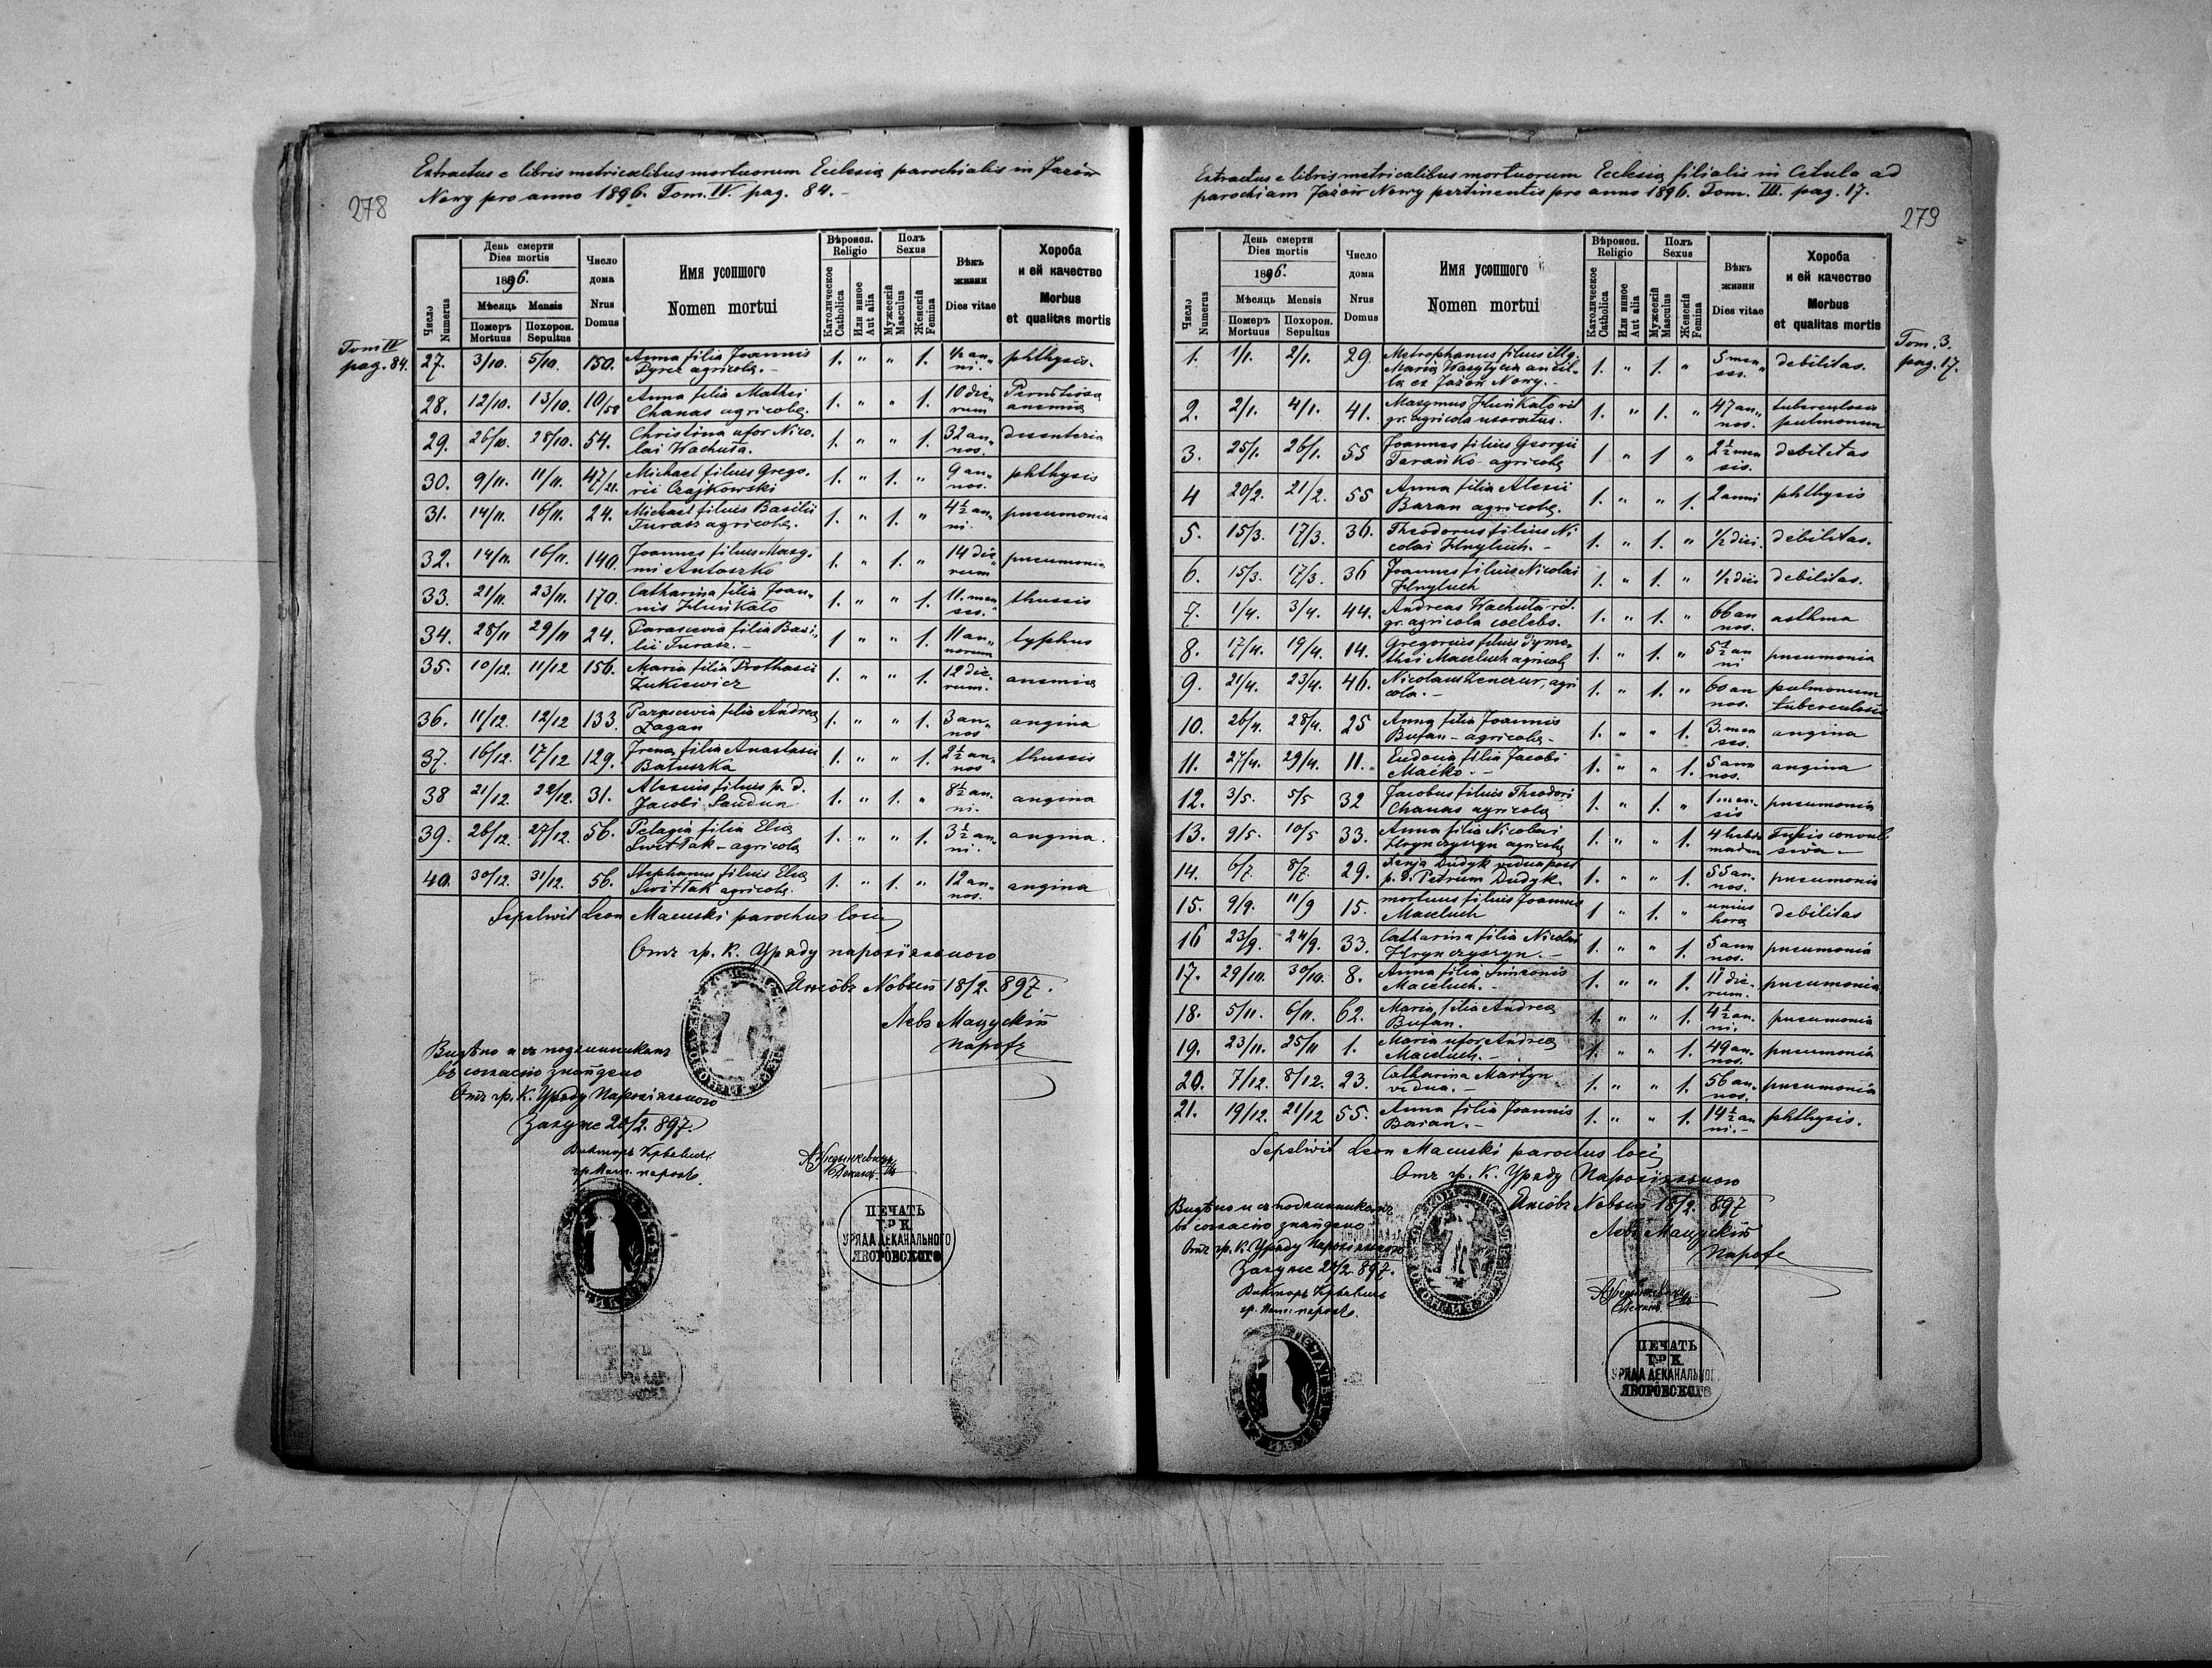 278
Extractus e libris metricalibus mortuorum Ecclesiæ parochialis in Jażów
Nowy pro anno 1896. Tom. IV. pag. 84. -
Tom IV
pag. 84.
Число
Numerus
День смерти
Dies mortis
1896.
Мѣсяць Mensis
Померъ
Mortuus
Похорон.
Sepultus
Число
дома
Nrus
Domus
Имя усопшого
Nomen mortui
Вѣроисп.
Religio
Католическое
Catholica
Или инное
Aut alia
Полъ
Sexus
Мужескій
Masculus
Женскій
Femina
Вѣкъ
жизни
Dies vitae
Хороба
и ей качество
Morbus
et qualitas mortis
27. 3/10. 5/10. 150. Anna filia Joannis
Pyrcz agricolæ. - 1. " " 1. 1/2 an„
ni. phthysis.
28. 12/10. 13/10. 10/58 Anna filia Mathei
Chanas agricolæ. 1. " " 1. 10 die„
rum Pernitiosa
anemia
29. 26/10. 28/10. 54. Christina uxor Nico„
lai Wachuta. 1. " " 1. 32 an„
nos. desenteria
30. 9/11. 11/11. 47/21. Michael filius Grego„
rii Czajkowski 1. " 1. " 9 an„
nos. phthysis
31. 14/11. 16/11. 24. Michael filius Basilii
Turasz agricolæ. 1. " 1. " 4 1/2 an„
ni. pneumonia
32. 14/11. 16/11. 140. Joannes filius Maxy„
mi Antoszko 1. " 1. " 14 die„
rum pneumonia
33. 21/11. 23/11. 170. Catharina filia Joan„
nis Hluńkato 1. " " 1. 11. men
ses. thussis
34. 28/11 29/11 24. Parascevia filia Basi„
lii Turasz. - 1 " " 1. 11 an„
norum typhus
35. 10/12. 11/12 156. Maria filia Prothasii
Żukiewicz 1. " " 1. 12 die„
rum. anemia
36. 11/12. 12/12 133. Parascevia filia Andreæ
Zagan 1. " " 1. 3 an„
nos angina
37. 16/12. 17/12 129. Irena filia Anastasii
Batuszka 1. " " 1. 2 1/2 an„
nos thussis
38 21/12. 22/12. 31. Alexius filius p. d.
Jacobi Saudun 1. " 1. " 8 1/2 an.
ni. angina
39. 26/12. 27/12. 56. Pelagia filia Eliæ
Świtłak - agricolæ 1. " " 1. 3 1/2 an„
ni. angina.
40. 30/12. 31/12. 56. Stephanus filius Eliæ
Świtłak agricolæ. 1. " 1. " 12 an„
nos. angina
Sepelivit Leon Macuski parochus loci
Отъ гр. К. Уряду парохіяльного
Яжôвъ Новый 18/2. 897.
Левъ Мацускій
парохъ
Видѣно и съ подлинникомъ
въ согласію знайдено
Отъ гр. К. Уряду Парохіяльного
Залуже 20/2. 897.
гр. кат. парохъ.
Деканъ.
ПЕЧАТЬ
ГР. К.
УРЯДА ДЕКАНАЛЬНОГО
ЯВОРÔВСКОГО
279
Extractus e libris metricalibus mortuorum Ecclesiæ filialis in Cetula ad
parochiam Jażów Nowy pertinentis pro anno 1896. Tom. III. pag. 17.
Tom. 3.
pag. 17.
Число
Numerus
День смерти
Dies mortis
1896.
Мѣсяць Mensis
Померъ
Mortuus
Похорон.
Sepultus
Число
дома
Nrus
Domus
Имя усопшого
Nomen mortui
Вѣроисп.
Religio
Католическое
Catholica
Или инное
Aut alia
Полъ
Sexus
Мужескій
Masculus
Женскій
Femina
Вѣкъ
жизни
Dies vitae
Хороба
и ей качество
Morbus
et qualitas mortis
1. 1/1. 2/1. 29. Metrophanus filius illg.
Maria Wasylycia ancil„
la ex Jażów Nowy. - 1. " 1. " 5 men„
ses. debilitas.
2. 2/1. 4/1. 41. Maxymus Hluńkato rit.
gr. agricola uxoratus. 1. " 1. " 47 an„
nos. tuberculosis
pulmonum
3. 25/1. 26/1. 55 Joannes filius Georgii
Tarańko - agricolæ 1 " 1 " 2 1/2 men
sis. debilitas
4 20/2. 21/2. 55 Anna filia Alexii
Baran agricolæ. 1. " " 1. 2 anni phthysis
5. 15/3. 17/3. 36. Theodorus filius Ni
colai Hnyluch. - 1. " 1. " 1/2 diei. debilitas.
6. 15/3. 17/3. 36 Joannes filius Nicolai
Hnyluch 1. " 1. " 1/2 diei debilitas.
7. 1/4. 3/4. 44. Andreas Wachuta rit.
gr. agricola coelebs. 1. " 1. " 66 an
nos. asthma
8. 17/4. 19/4. 14. Gregorius filius Tymo„
thei Maceluch agricolæ 1. " 1. " 5 1/2 an
ni pneumonia
9. 21/4. 23/4. 46. Nicolaus Zenczur, agri
cola. - 1. " 1. " 60 an
nos. pulmonum
tuberculosis
10. 26/4. 28/4. 25 Anna filia Joannis
Bufan - agricolæ - 1. " " 1. 3. men
ses. angina
11. 27/4. 29/4. 11. Eudocia filia Jacobi
Maćko. - 1. " " 1. 5 ann
nos. angina
12. 3/5. 5/5 32 Jacobus filius Theodori
Chanas agricolæ 1. " 1. " 1 men„
sis pneumonia
13. 9/5. 10/5 33. Anna filia Nicolai
Hrynczyszyn agricolæ 1. " " 1. 4 hebdo
madum Tussis convul
siva -
14. 6/7. 8/7. 29. Xenja Dudyk vidua post
p. d. Petrum Dudyk. 1. " " 1. 55 an„
nos. pneumonia
15. 9/9. 11/9 15. mortuus filius Joannes
Maceluch 1 " 1. " unius
hora debilitas
16 23/9. 24/9. 33. Catharina filia Nicolai
Hrynczyszyn. - 1. " " 1. 5 ann
nos. pneumonia
17. 29/10. 30/10. 8. Anna filia Simeonis
Maceluch. - 1. " " 1. 17 die„
rum. pneumonia
18. 5/11. 6/11. 62. Maria filia Andreæ
Bufan. 1. " " 1. 4 1/2 an.
ni. pneumonia
19. 23/11. 25/11 1. Maria uxor Andreæ
Maceluch. - 1. " " 1. 49 an„
nos. pneumonia
20. 7/12. 8/12. 23. Catharina Martyn
vidua. - 1. " " 1. 56 an„
nos. pneumonia
21. 19/12. 21/12 55. Anna filia Joannis
Baran. - 1. " " 1. 14 1/2 an
ni. - phthysis.
Sepelivit Leon Macuski parochus loci
Отъ гр. К. Уряду Парохіяльного
Яжôвъ Новый 18/2. 897
Левъ Мацускій
парохъ
Видѣно и съ подлинникомъ
въ согласію знайдено
Отъ гр. К. Уряду Парохіяльного
Залуже 20/2. 897.
гр. кат. парохъ.
Деканъ.
ПЕЧАТЬ
ГР. К.
УРЯДА ДЕКАНАЛЬНОГ
ЯВОРÔВСКОГО